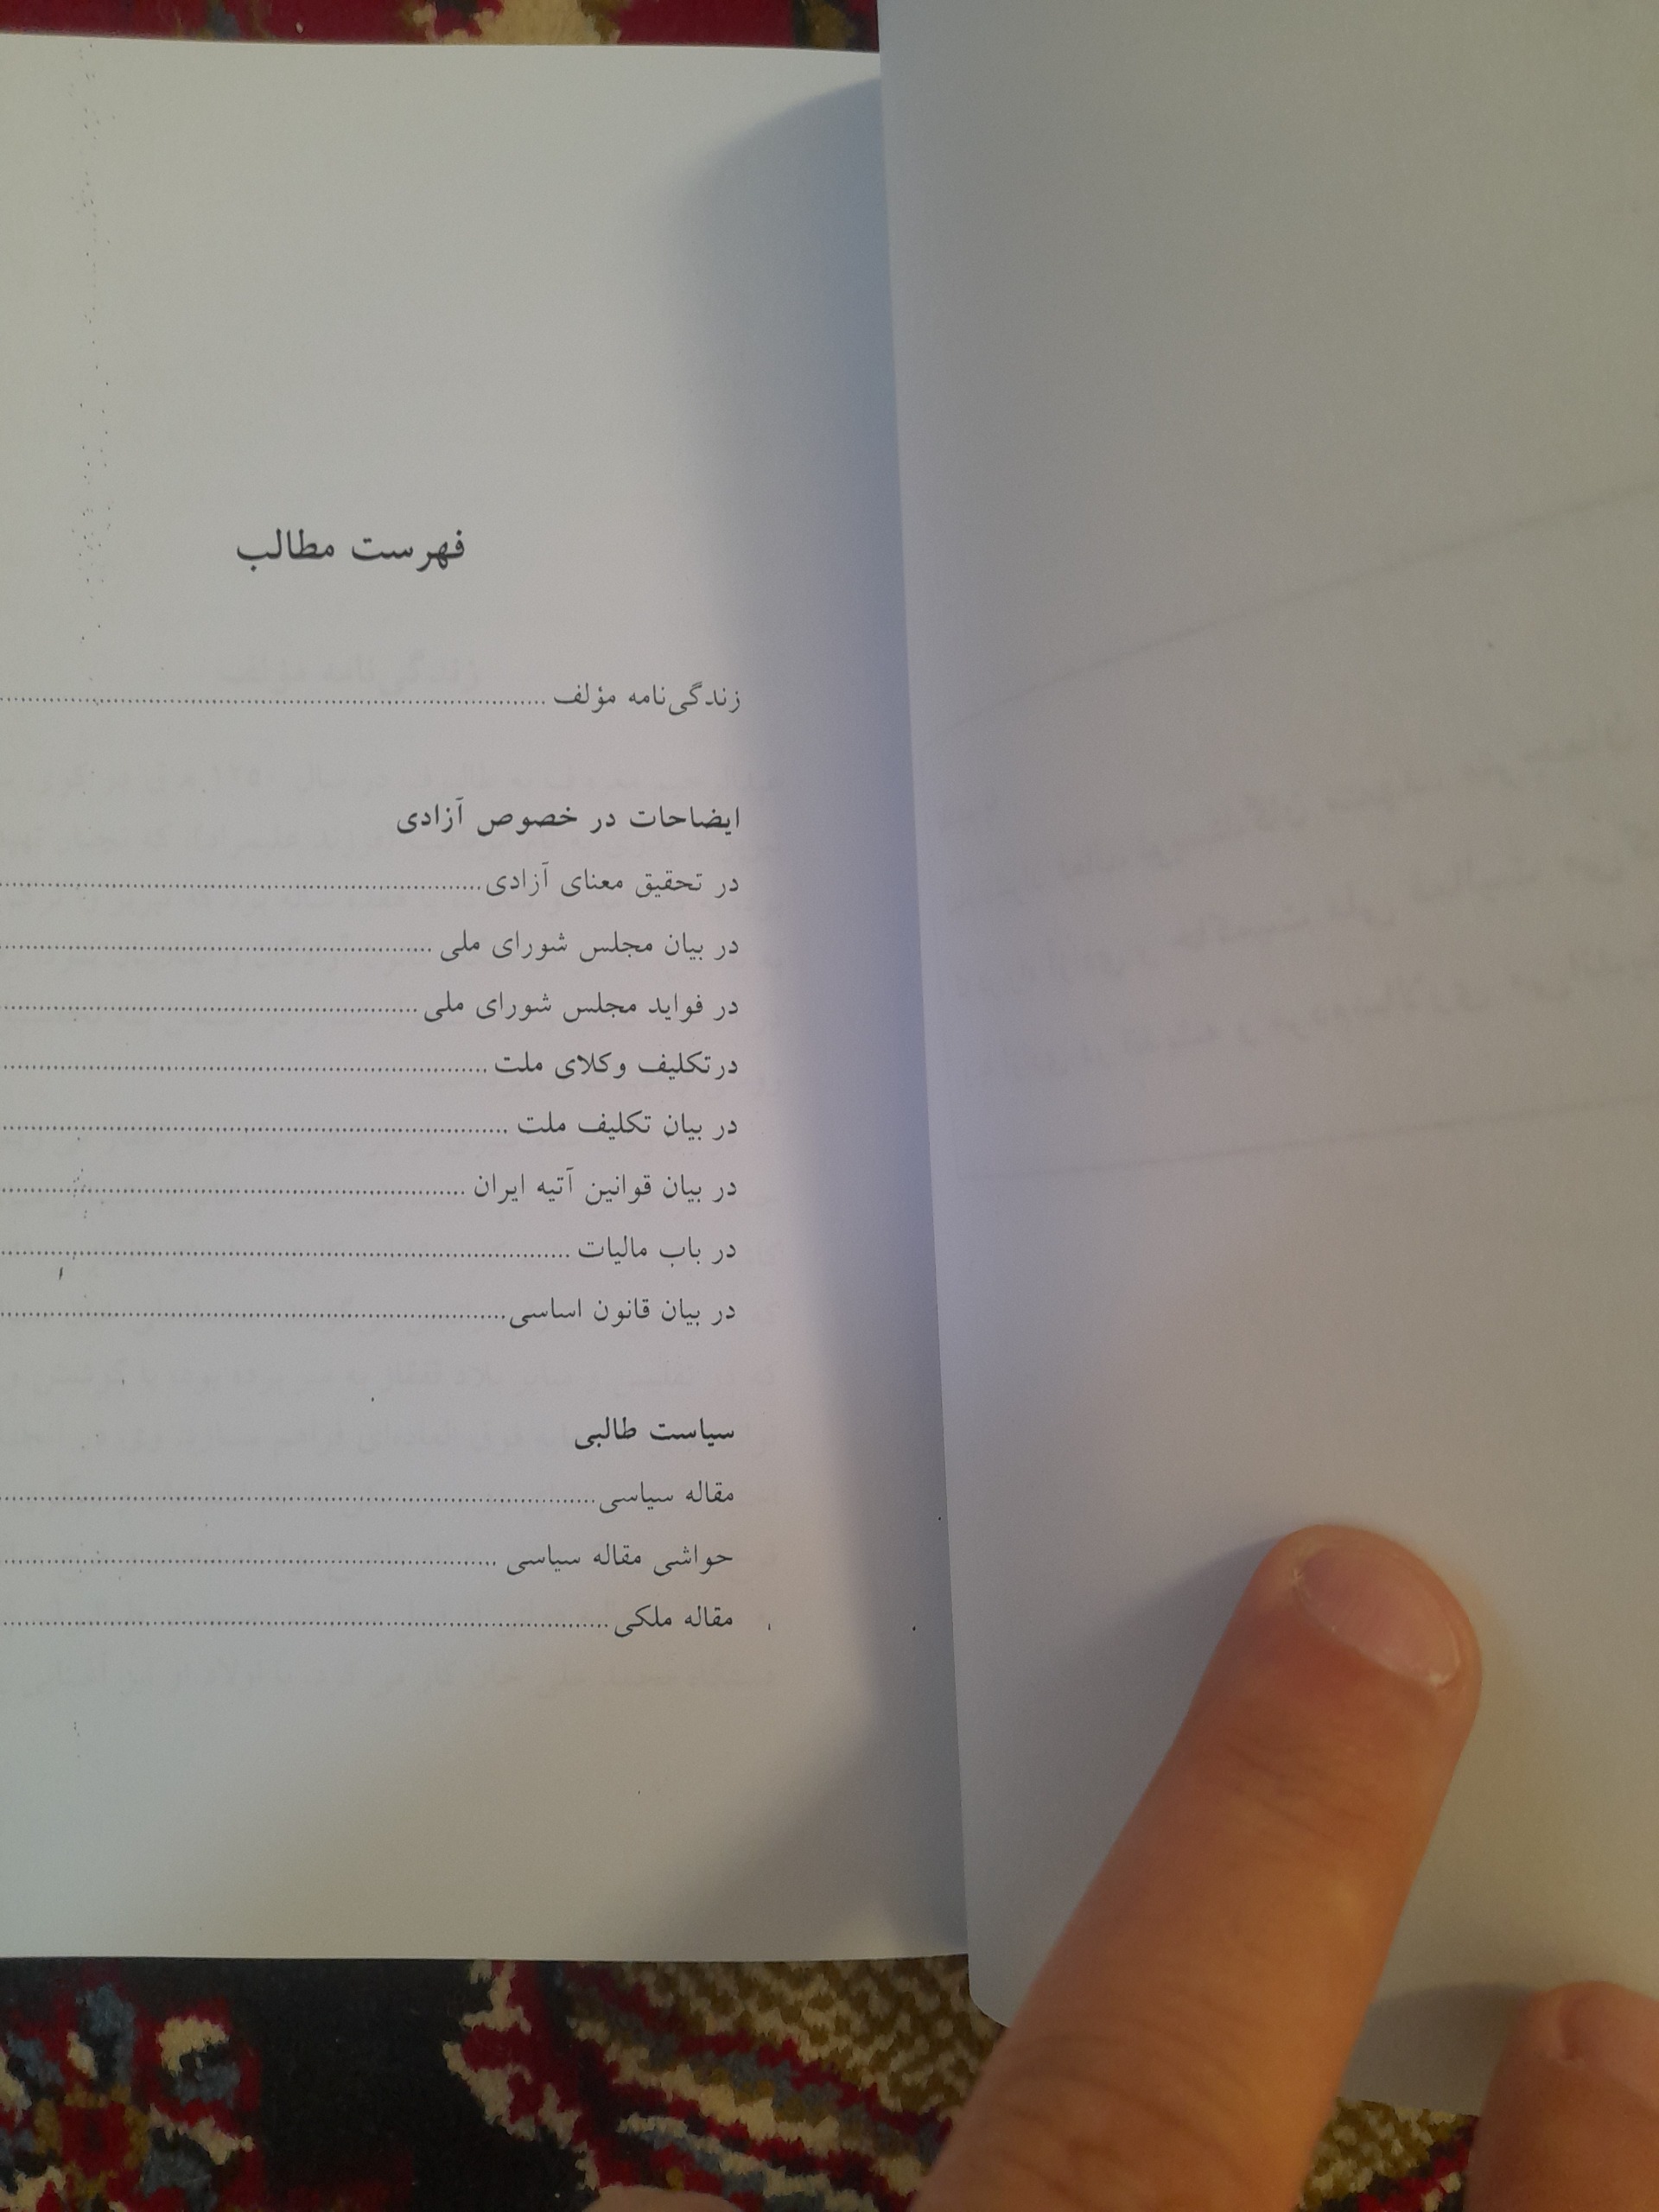 فهرست مطالب
زندگی‌نامه مؤلف
ایضاحات در خصوص آزادی
در تحقیق معنای آزادی
در بیان مجلس شورای ملی
در فواید مجلس شورای ملی
درتکلیف وکلای ملت
در بیان تکلیف ملت
در بیان قوانین آتیه ایران
در باب مالیات
در بیان قانون اساسی
سیاست طالبی
مقاله سیاسی
حواشی مقاله سیاسی
مقاله ملکی